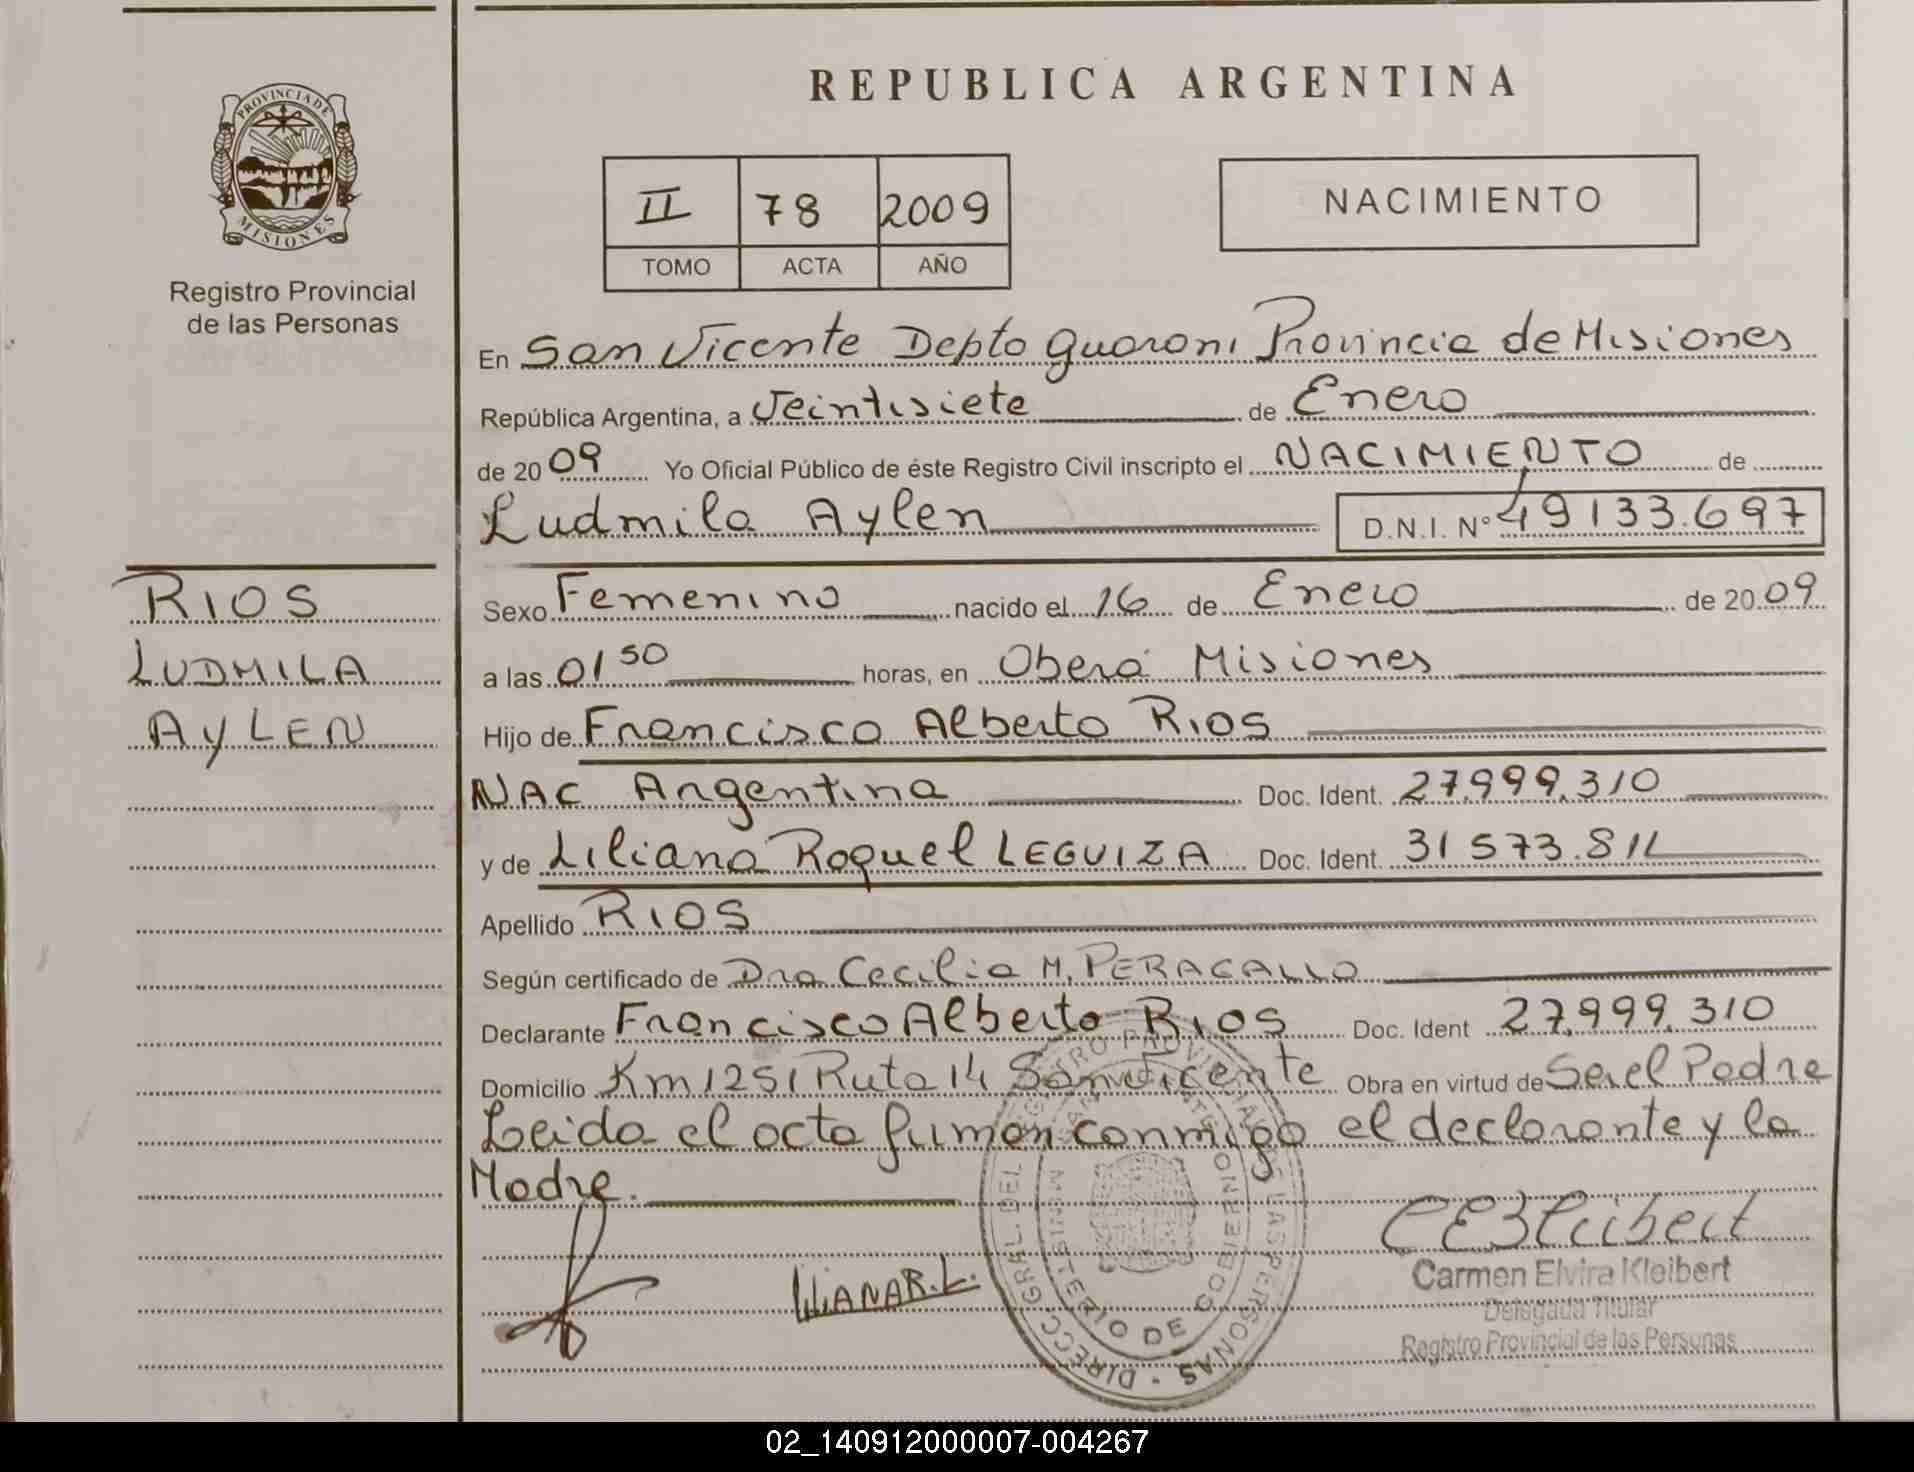 REPUBLICA ARGENTINA
PROVINCIA DE
MISIONES
Registro Provincial
de las Personas
II 78 2009
TOMO ACTA AÑO
NACIMIENTO
En San Vicente Depto Guarani Provincia de Misiones
República Argentina, a Veintisiete de Enero
de 2009 Yo Oficial Público de éste Registro Civil inscripto el NACIMIENTO de
Ludmila Aylen D.N.I. Nº 49133.697
RIOS
LUDMILA
AYLEN
Sexo Femenino nacido el 16 de Enero de 2009
a las 01 50 horas, en Oberá Misiones
Hijo de Francisco Alberto RIOS
NAC Argentina Doc. Ident. 27.999.310
y de Liliana Raquel LEGUIZA Doc. Ident. 31573.811
Apellido RIOS
Según certificado de Dra Cecilia M. PERAGALLO
Declarante Francisco Alberto RIOS Doc. Ident 27.999.310
Domicilio Km 1251 Ruta 14 San Vicente Obra en virtud de Ser el Padre
Leida el acta firman conmigo el declarante y la
Madre.
LiliANA R. L.
CEKleibert
Carmen Elvira Kleibert
Delegada Titular
Registro Provincial de las Personas
DIRECC GRAL DEL REGISTRO PROVINCIAL DE LAS PERSONAS
MINISTERIO DE GOBIERNO
02_140912000007-004267